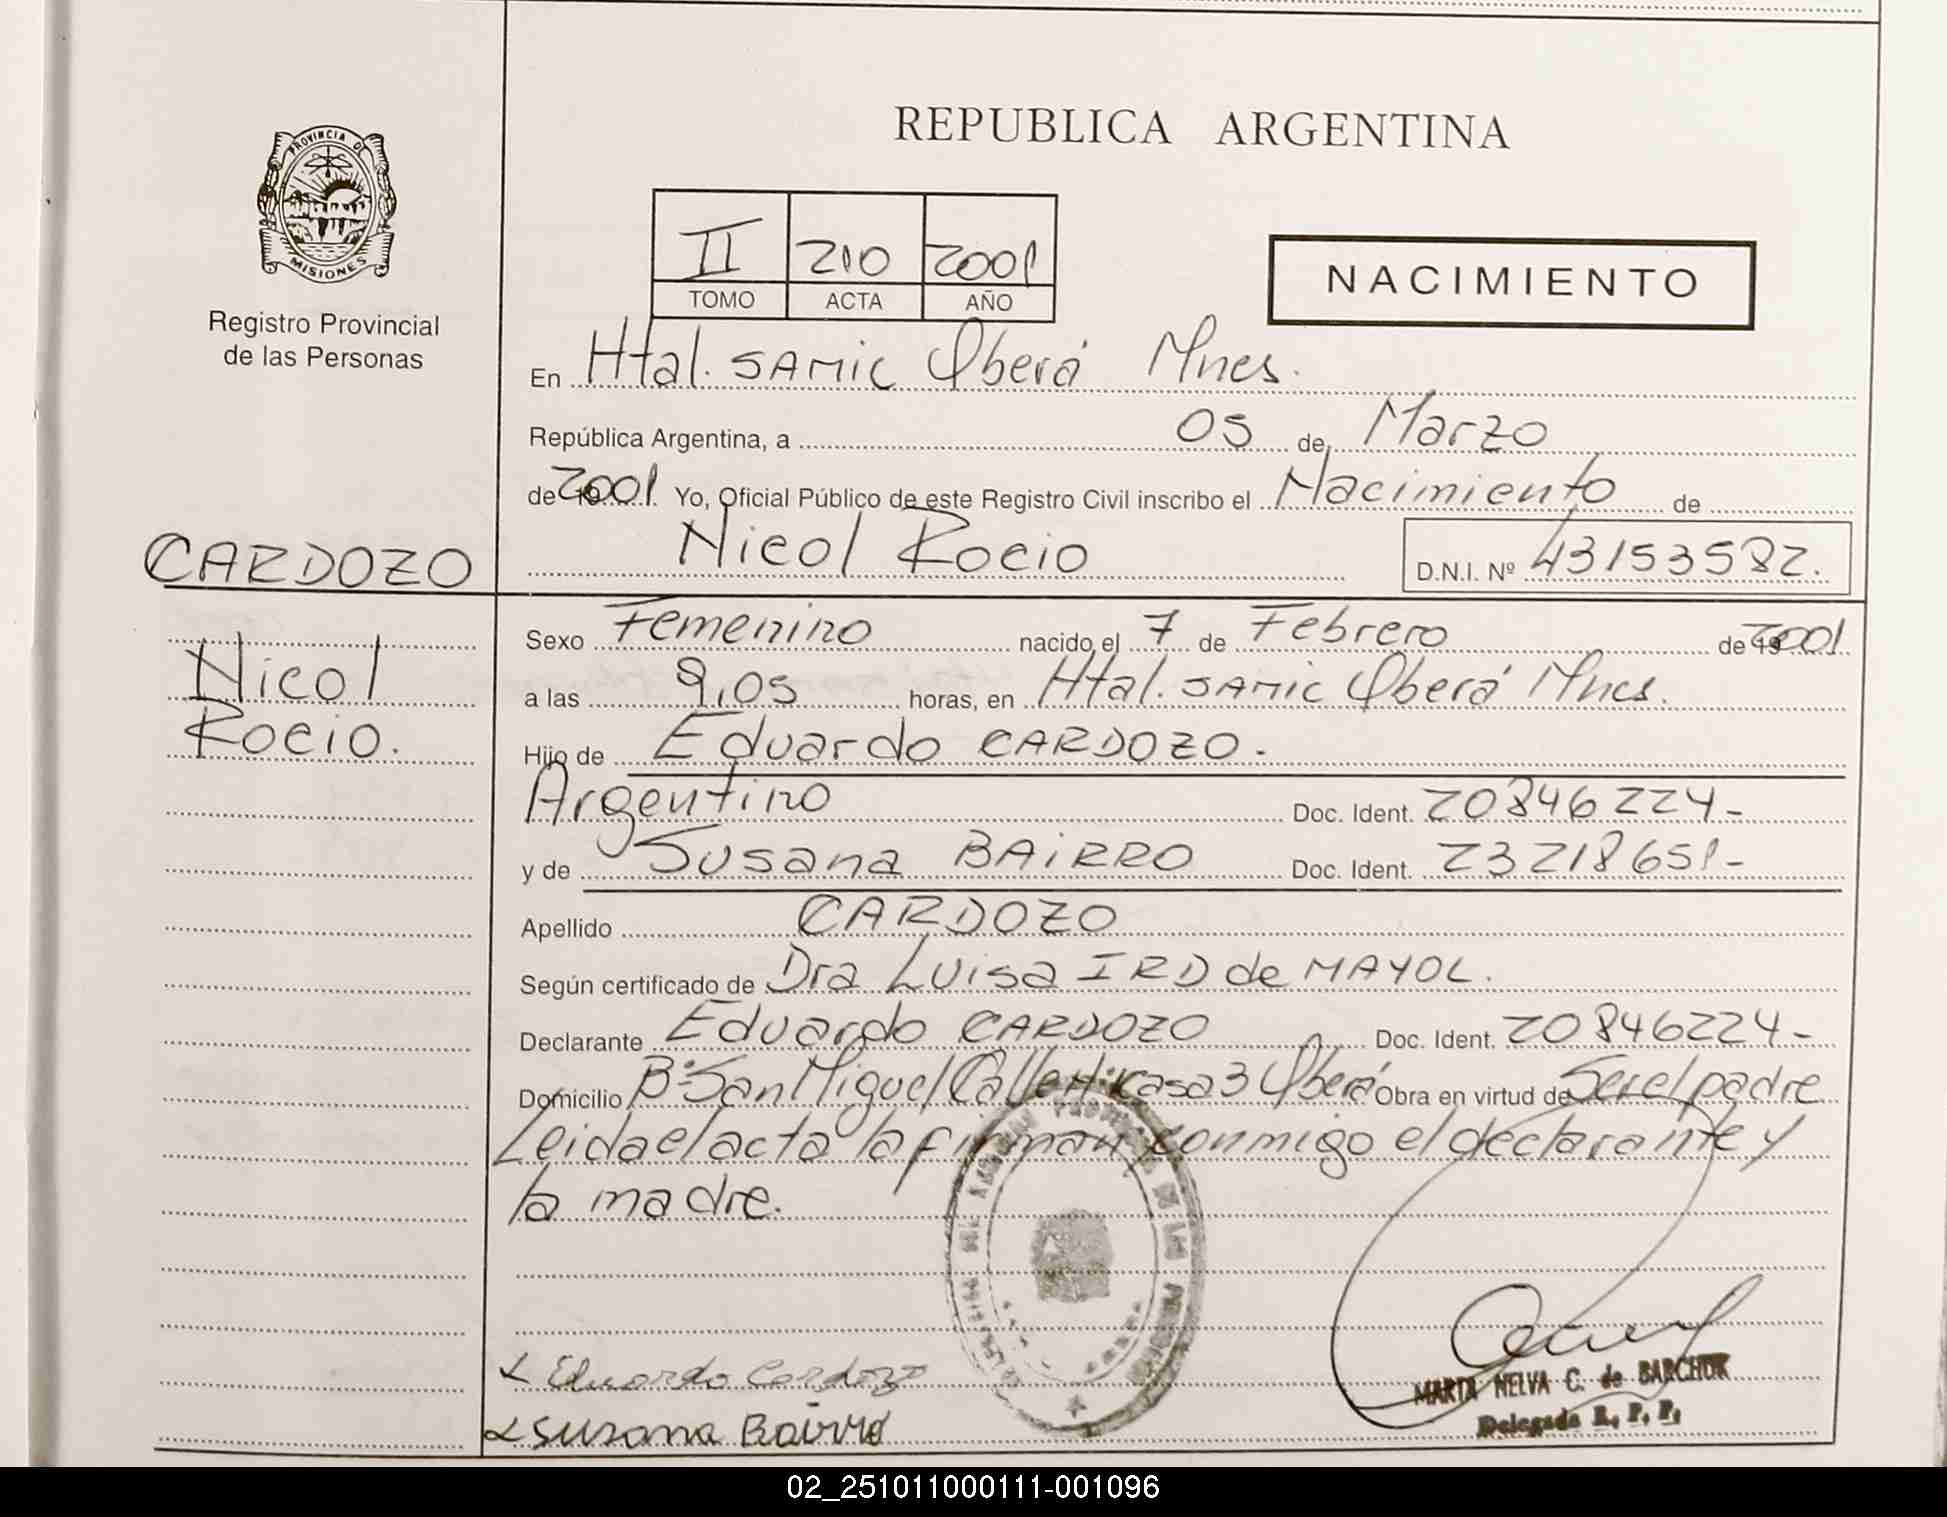 REPUBLICA ARGENTINA
PROVINCIA DE
MISIONES
Registro Provincial
de las Personas
II 210 2001
TOMO ACTA AÑO
NACIMIENTO
En Htal. SAMIC Oberá Mnes.
República Argentina, a 05 de Marzo
de 2001. Yo, Oficial Público de este Registro Civil inscribo el Nacimiento de
CARDOZO
Nicol Rocio
D.N.I. Nº 43153582.
Nicol
Rocio.
Sexo Femenino nacido el 7 de Febrero de 2001.
a las 9,05 horas, en Htal. SAMIC Oberá Mnes.
Hijo de Eduardo CARDOZO.
Argentino Doc. Ident. 20846224-
y de Susana BAIRRO Doc. Ident. 23218651-
Apellido CARDOZO
Según certificado de Dra Luisa IRD de MAYOL.
Declarante Eduardo CARDOZO Doc. Ident. 20846224-
Domicilio Bº San Miguel Calle casa 3 Oberá Obra en virtud de Ser el padre
Leida el acta la firman conmigo el declarante y
la madre.
Eduardo Cardozo
Susana Bairro
MARTA NELVA C. de BARCHUK
Delegada R. P. P.
02_251011000111-001096